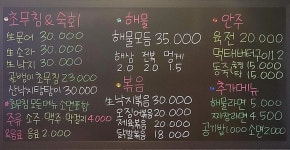 초무침&숙회
생문어 30.000
생소라 30.000
생낙지 30.000
골뱅이초무침 23000
산낙지탕탕이 30.000
초무침 모든메뉴 소면포함
주류 소주 맥주 막걸리 4000
음료 2.000
해물
해물모듬 35.000
해삼 전복 멍게
2.0 2.0 1.5
볶음
생낙지볶음 30000
오징어볶음 20.000
제육볶음 20.000
닭발볶음 18.000
안주
육전 20.000
먹태 12
동죽탕 15000
15000
추가메뉴
해물라면 5.000
짜파라면 4.500
공기밥1.000 소면2.000